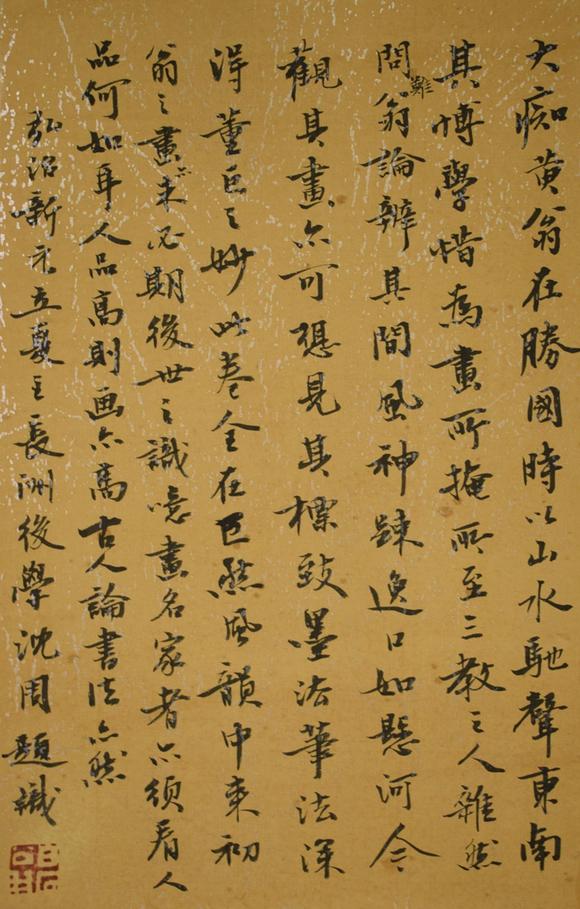 大痴黄翁在勝國時以山水馳聲東南
其博學惜為畫所掩所至三教之人雜然
問難翁論辨其間風神踈逸口如懸河今
觀其畫亦可想見其標致墨法筆法深
得董巨之妙此卷全在巨然風韻中来初
翁之畫未必期後世之識噫畫名家者亦須看人
品何如耳人品高則画亦高古人論書法亦然
弘治新元立夏長洲後學沈周題識